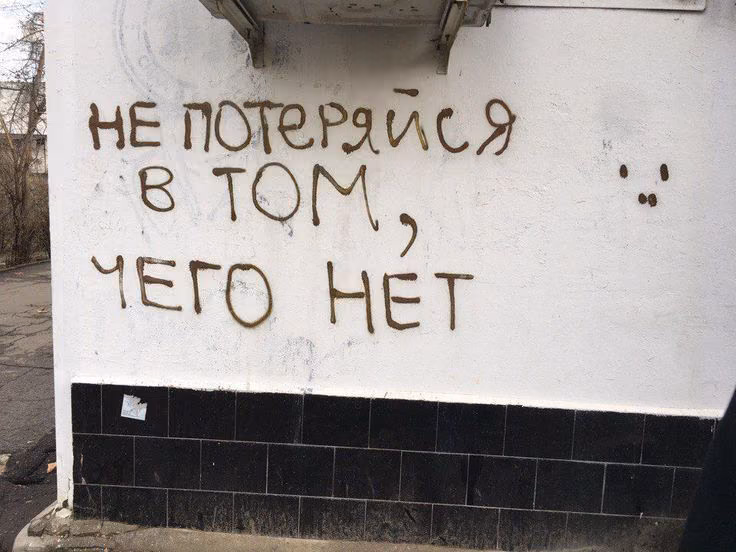 НЕ ПОТЕРЯЙСЯ
В ТОМ,
ЧЕГО НЕТ